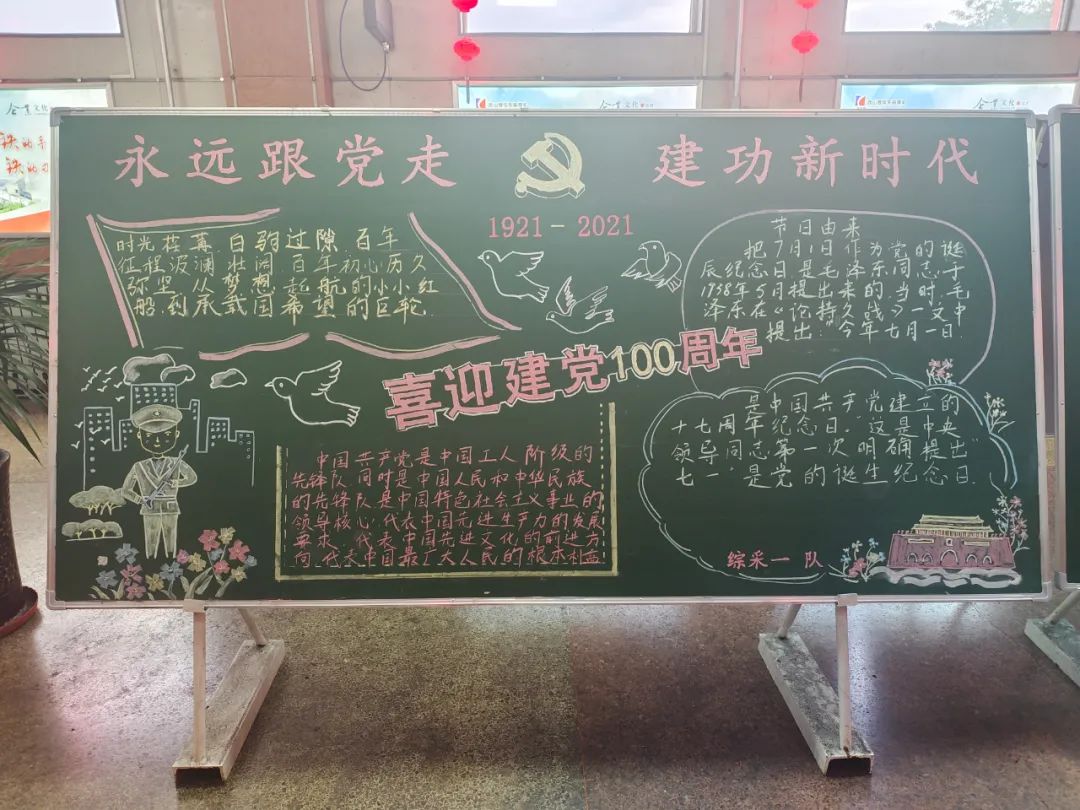 永远跟党走
建功新时代
1921-2021
时光荏苒 白驹过隙 百年
征程波澜壮阔 百年初心历久
弥坚 从梦想起航的小小红
船 到承载国希望的巨轮
节日由来
把7月1日作为党的诞
辰纪念日是毛泽东同志于
1938年5月提出来的.当时,毛
泽东在《论持久战》一文中
提出:"今年七月一日.
喜迎建党100周年
是中国共产党建立的
十七周年纪念日.这是中央
领导同志第一次明确提出"
七一"是党的诞生纪念日.
中国共产党是中国工人阶级的
先锋队,同时是中国人民和中华民族
的先锋队,是中国特色社会主义事业的
领导核心,代表中国先进生产力的发展
要求,代表中国先进文化的前进方
向,代表中国最广大人民的根本利益
综采一队
企业文化
企业文化